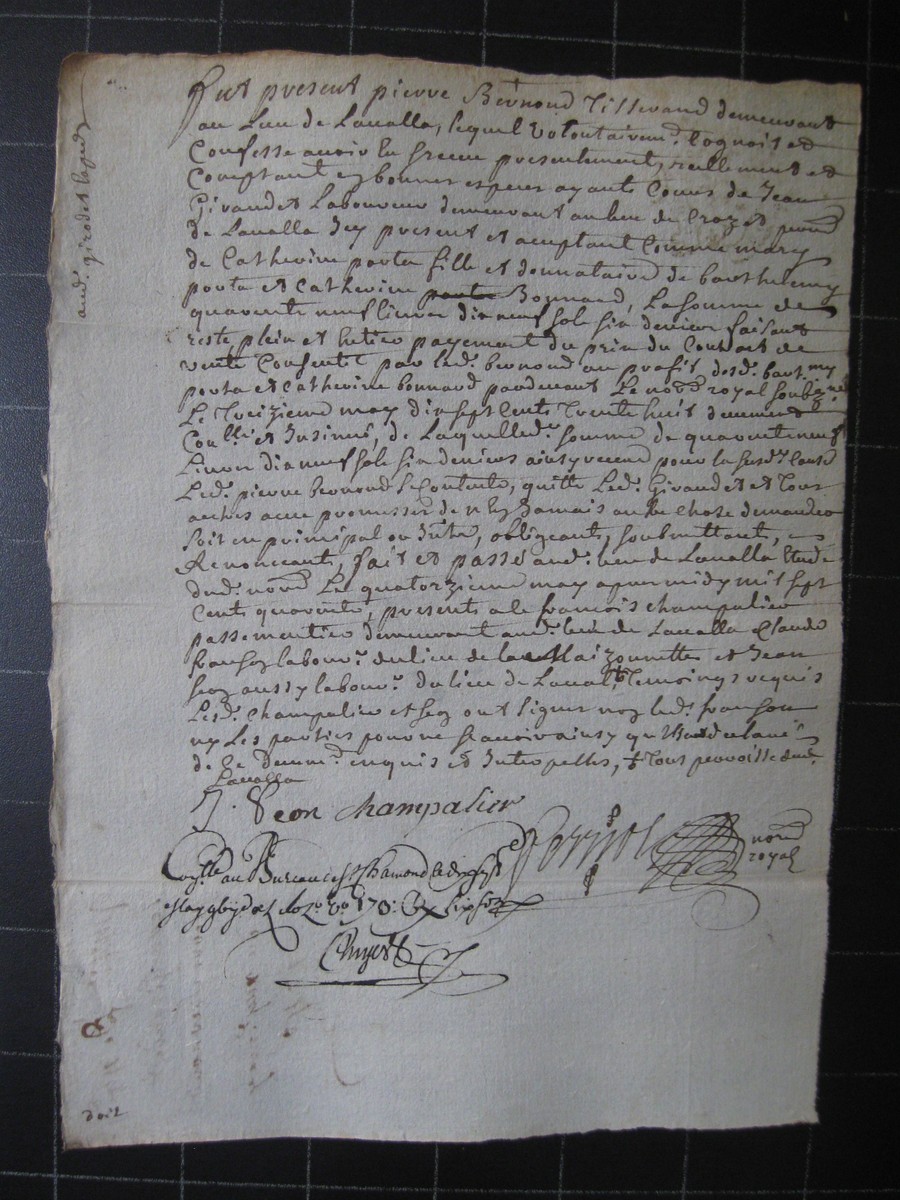 aud. girodet laped
fut present pierre Bernond Tisserand demeurant
au Lieu de Lavalla, lequel Volontairemt. Cognoit et
Confesse avoir eu Et receu presentement, reellement et
Comptant en bonnes especes ayants Cours de Jean
Giraudet Laboureur demeurant au lieu de Crozet
de Lavalla Icy present et aceptant Comme mary
de Catherine porta fille et donnataire de barthelemy
porta et Catherine Bonnard, La somme de
quarente neuf livres dix neuf sols six deniers faisant
reste, plein et entier payement du prix du Contrat de
vente Consentie par led. bernond au profit desd. bart.my
porta et Catherine bonnard pardevant Le nore royal soubzne
Le Treizieme may dix sept Cents Trente huit deuement
Conllé et Insinué, de Laquelle d. somme de quarente neuf
Livres dix neuf sols six deniers ainsy receue pour la susd. Cause
Led. pierre bernond Se Contente, quitte Led. Giraudet et Tous
autres avec promesses de n'en Jamais autre chose demander
soit en principal ou Intets, obligeants, soubmettant,
Renonceant, fait et passé aud. lieu de Lavalla Etude
dud. nore Le quatorzieme may apres midy mil sept
Cents quarente, presents a le francois champalier
passementier demeurant aud. lieu de Lavalla Claude
franson labour. du lieu de la Maizonnette et Jean
seon aussy labour. du lieu de Laval, + Temoings requis
Lesd. Champalier et seon ont signes non led. franson
ny Les parties pour ne sçavoir ainsy qu'ils ont declaré
de Ce deuemt. enquis et Interpellés, + Tous parroisse dud.
Lavalla
J. Seon Champalier
Perriol
nore
royal
Conllé au Bureau de St Chamond Le dix sept
may
doit